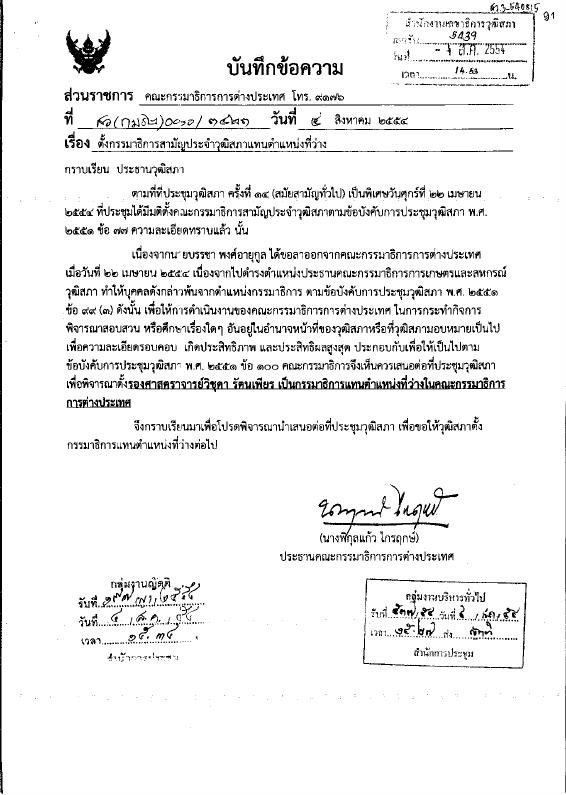 91
สำนักงานเลขาธิการวุฒิสภา
เลขรับ 5439
วันที่ - 4 ส.ค. 2554
เวลา 14.53 น.
บันทึกข้อความ
ส่วนราชการ คณะกรรมาธิการการต่างประเทศ โทร. ๙๑๗๖
ที่ วันที่ ๔ สิงหาคม ๒๕๕๔
เรื่อง ตั้งกรรมาธิการสามัญประจำวุฒิสภาแทนตำแหน่งที่ว่าง
กราบเรียน ประธานวุฒิสภา
ตามที่ที่ประชุมวุฒิสภา ครั้งที่ ๑๔ (สมัยสามัญทั่วไป) เป็นพิเศษวันศุกร์ที่ ๒๒ เมษายน
๒๕๕๔ ที่ประชุมได้มีมติตั้งคณะกรรมาธิการสามัญประจำวุฒิสภาตามข้อบังคับการประชุมวุฒิสภา พ.ศ.
๒๕๕๑ ข้อ ๗๗ ความละเอียดทราบแล้ว นั้น
เนื่องจากนายบรรชา พงศ์อายุกูล ได้ขอลาออกจากคณะกรรมาธิการการต่างประเทศ
เมื่อวันที่ ๒๒ เมษายน ๒๕๕๔ เนื่องจากไปดำรงตำแหน่งประธานคณะกรรมาธิการการเกษตรและสหกรณ์
วุฒิสภา ทำให้บุคคลดังกล่าวพ้นจากตำแหน่งกรรมาธิการ ตามข้อบังคับการประชุมวุฒิสภา พ.ศ. ๒๕๕๑
ข้อ ๙๙ (๓) ดังนั้น เพื่อให้การดำเนินงานของคณะกรรมาธิการการต่างประเทศ ในการกระทำกิจการ
พิจารณาสอบสวน หรือศึกษาเรื่องใดๆ อันอยู่ในอำนาจหน้าที่ของวุฒิสภาหรือที่วุฒิสภามอบหมายเป็นไป
เพื่อความละเอียดรอบคอบ เกิดประสิทธิภาพ และประสิทธิผลสูงสุด ประกอบกับเพื่อให้เป็นไปตาม
ข้อบังคับการประชุมวุฒิสภา พ.ศ. ๒๕๕๑ ข้อ ๑๐๐ คณะกรรมาธิการจึงเห็นควรเสนอต่อที่ประชุมวุฒิสภา
เพื่อพิจารณาตั้งรองศาสตราจารย์วิชุดา รัตนเพียร เป็นกรรมาธิการแทนตำแหน่งที่ว่างในคณะกรรมาธิการ
การต่างประเทศ
จึงกราบเรียนมาเพื่อโปรดพิจารณานำเสนอต่อที่ประชุมวุฒิสภา เพื่อขอให้วุฒิสภาตั้ง
กรรมาธิการแทนตำแหน่งที่ว่างต่อไป
(นางพิกุลแก้ว ไกรฤกษ์)
ประธานคณะกรรมาธิการการต่างประเทศ
กลุ่มงานญัตติ
รับที่
วันที่ ๔ ส.ค. ๕๔
เวลา ๑๕.๓๔
สำนักการประชุม
กลุ่มงานบริหารทั่วไป
รับที่ วันที่ ๔ ส.ค. ๕๔
เวลา ๑๕.๒๗ ส่ง ญัตติ
สำนักการประชุม